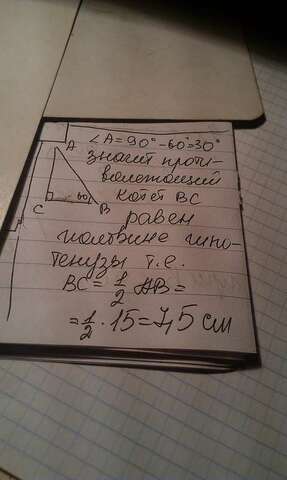 A
∠A=90°-60°=30°
значит проти-
волежащий
катет BC
C 60° B
равен
половине гипо-
тенузы т.е.
BC = 1/2 AB =
= 1/2 · 15 = 7,5 см